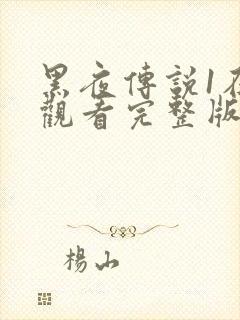 黑夜傳説1在
觀看完整版
楊山